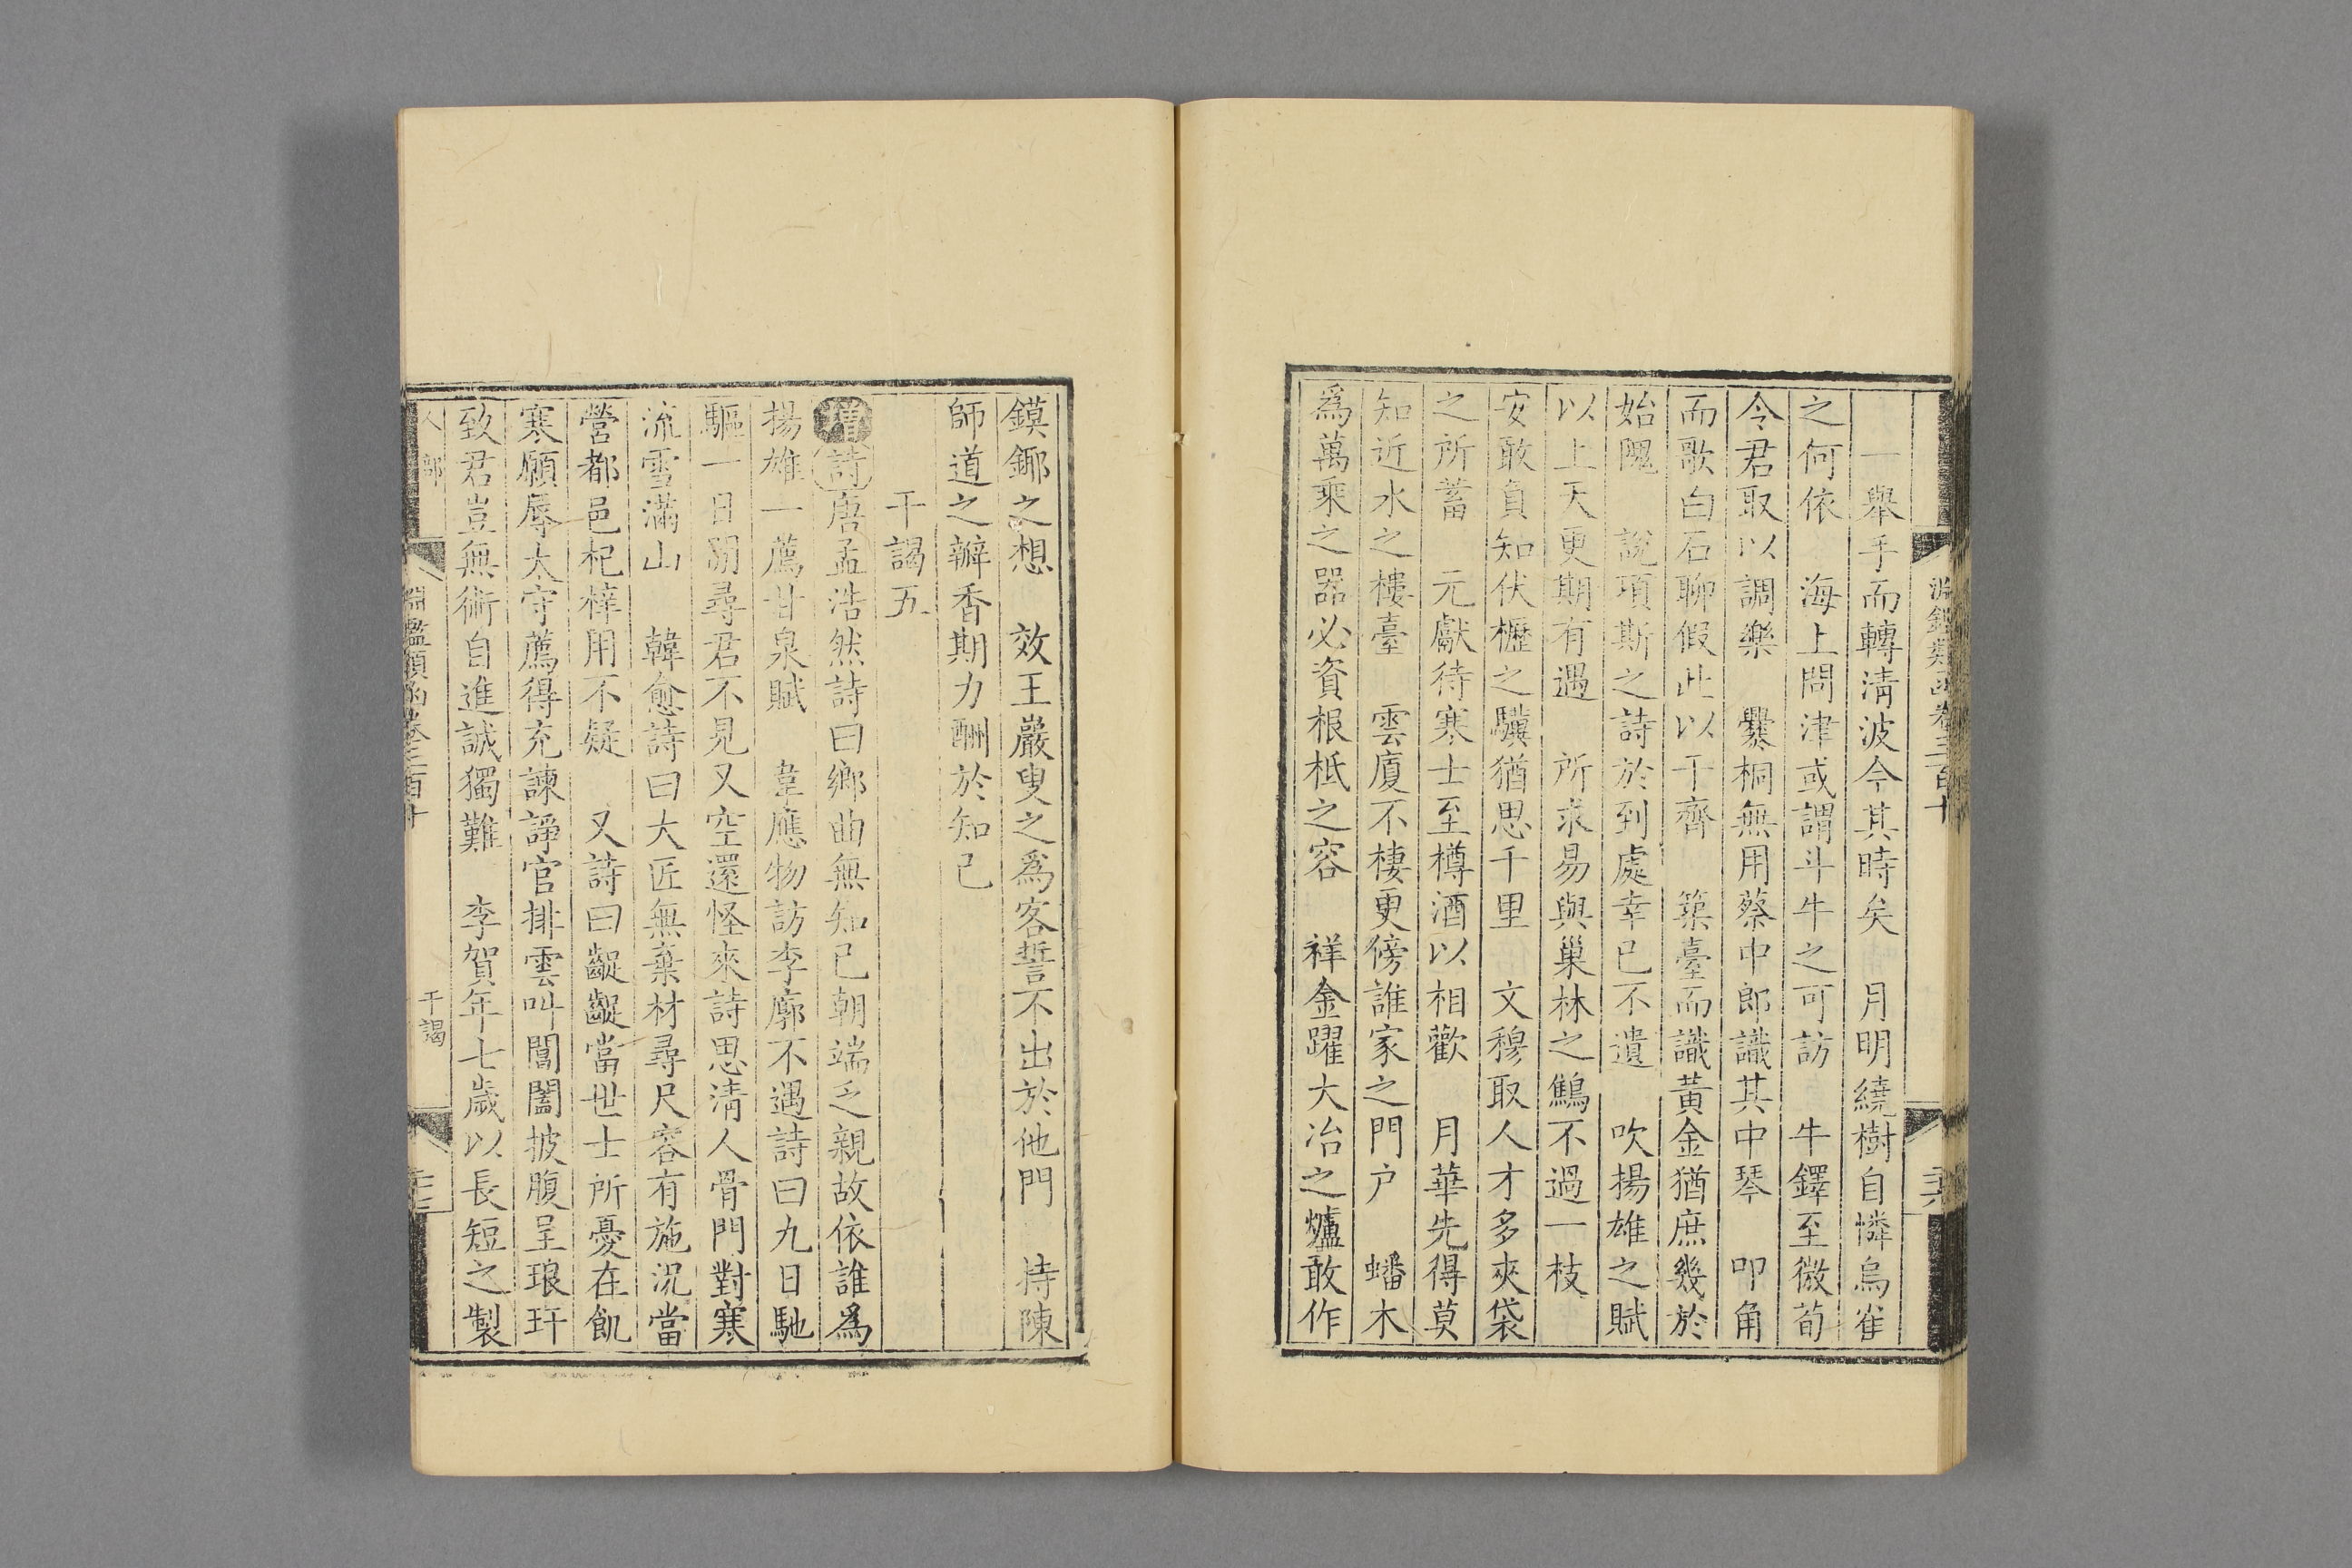 淵鑑類函卷三百十
三六
一舉手而轉清波今其時矣　月明繞樹自憐烏雀
之何依　海上問津或謂斗牛之可訪　牛鐸至微荀
令君取以調樂　爨桐無用蔡中郎識其中琴　叩角
而歌白石聊假此以干齊　築臺而識黃金猶庶幾於
始隗　說項斯之詩於到處幸已不遺　吹揚雄之賦
以上天更期有遇　所求易與巢林之鷦不過一枝
安敢負知伏櫪之驥猶思千里　文穆取人才多夾袋
之所蓄　元獻待寒士至樽酒以相歡　月華先得莫
知近水之樓臺　雲廈不棲更傍誰家之門户　蟠木
爲萬乘之器必資根柢之容　祥金躍大冶之爐敢作
鏌鋣之想　效王巖叟之爲客誓不出於他門　持陳
師道之瓣香期力酬於知已
干謁五
增詩唐孟浩然詩曰鄉曲無知已朝端乏親故依誰爲
揚雄一薦甘泉賦　韋應物訪李廓不遇詩曰九日馳
驅一日閒尋君不見又空還怪來詩思清人骨門對寒
流雪滿山　韓愈詩曰大匠無棄材尋尺容有施況當
營都邑杞梓用不疑　又詩曰齪齪當世士所憂在飢
寒願辱太守薦得充諫諍官排雲叫閶闔披腹呈琅玕
致君豈無術自進誠獨難　李賀年七歲以長短之製
人部
淵鑑類函卷三百十
干謁